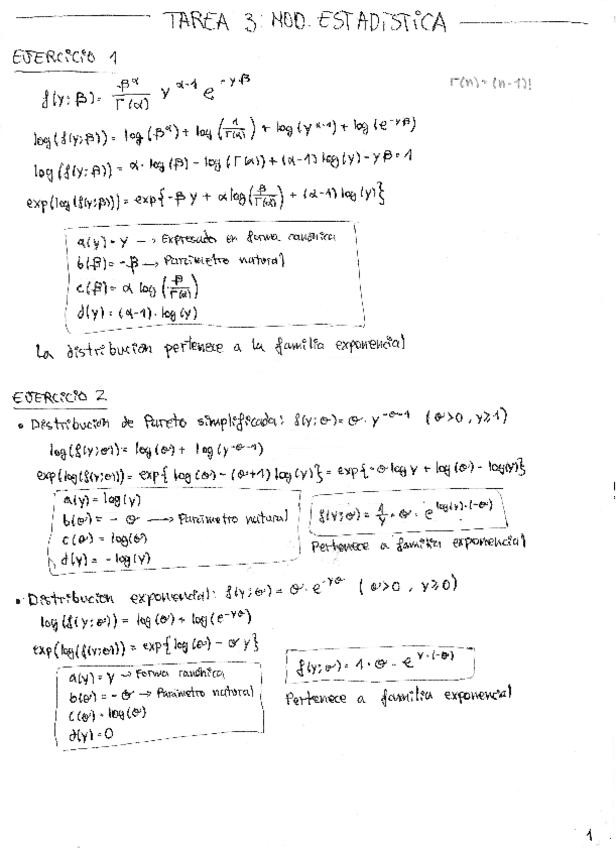 TAREA 3: MOD. ESTADÍSTICA
EJERCICIO 1
f(y;β) = β^α / Γ(α) y^(α-1) e^(-yβ)
Γ(n) = (n-1)!
log(f(y;β)) = log(β^α) + log(1/Γ(α)) + log(y^(α-1)) + log(e^(-yβ))
log(f(y;β)) = α·log(β) - log(Γ(α)) + (α-1) log(y) - yβ·1
exp(log(f(y;β))) = exp{-βy + α log(β/Γ(α)) + (α-1) log(y)}
a(y) = y → Expresado en forma canónica
b(β) = -β → Parámetro natural
c(β) = α log(β/Γ(α))
d(y) = (α-1)·log(y)
La distribución pertenece a la familia exponencial
EJERCICIO 2
• Distribución de Pareto simplificada: f(y;θ) = θ·y^(-θ-1) (θ>0, y≥1)
log(f(y;θ)) = log(θ) + log(y^(-θ-1))
exp(log(f(y;θ))) = exp{log(θ) - (θ+1) log(y)} = exp{-θ log y + log(θ) - log(y)}
a(y) = log(y)
b(θ) = -θ → Parámetro natural
c(θ) = log(θ)
d(y) = -log(y)
f(y;θ) = 1/y · θ · e^(log(y)·(-θ))
Pertenece a familia exponencial
• Distribución exponencial: f(y;θ) = θ·e^(-yθ) (θ>0, y≥0)
log(f(y;θ)) = log(θ) + log(e^(-yθ))
exp(log(f(y;θ))) = exp{log(θ) - θy}
a(y) = y → Forma canónica
b(θ) = -θ → Parámetro natural
c(θ) = log(θ)
d(y) = 0
f(y;θ) = 1·θ·e^(y·(-θ))
Pertenece a familia exponencial
1